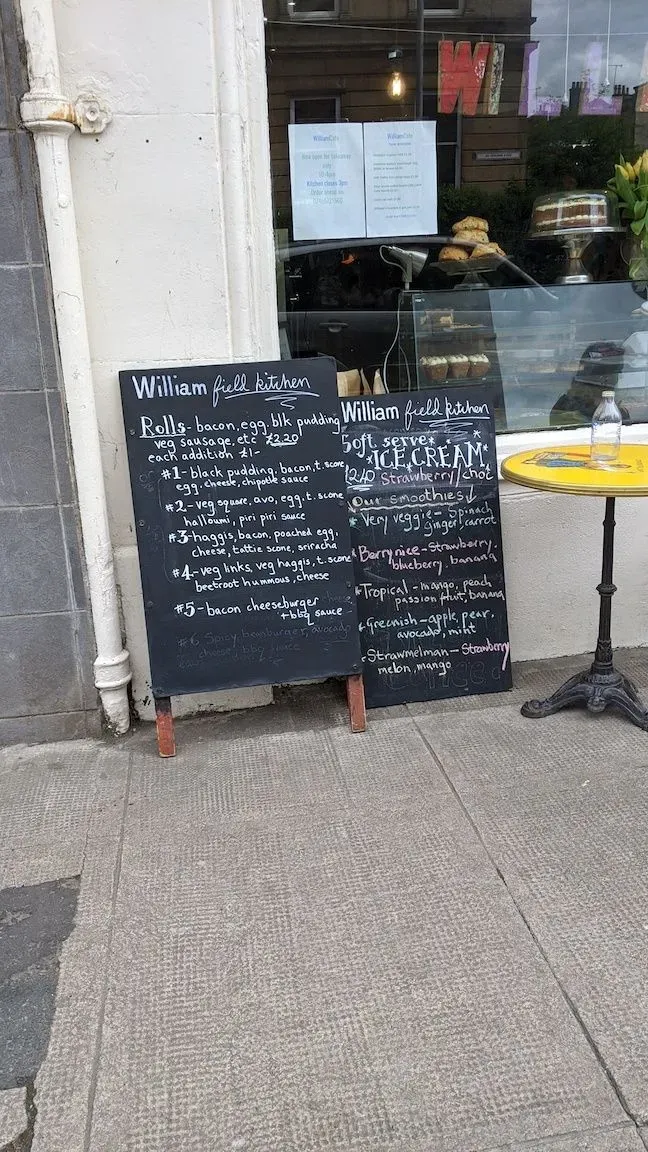 WILL
WilliamCafe
Now open for takeaway
only
10-4pm
Kitchen closes 3pm
Order ahead on
WilliamCafe
William field kitchen
Rolls- bacon, egg, blk pudding
veg sausage, etc £2.20
each addition £1-
#1- black pudding, bacon, t.scone
egg, cheese, chipotle sauce
#2- veg square, avo, egg, t.scone
halloumi, piri piri sauce
#3- haggis, bacon, poached egg,
cheese, tattie scone, sriracha
#4- veg links, veg haggis, t.scone
beetroot hummous, cheese
#5- bacon cheeseburger
+ bbq sauce
#6 Spicy beanburger, avocado
cheese, bbq sauce
William field kitchen
Soft serve
ICE CREAM
£2.20 Strawberry/choc
Our smoothies ↓
Very veggie- Spinach
ginger, carrot
Berrynice- Strawberry,
blueberry, banana
Tropical- mango, peach
passion fruit, banana
Greenish- apple, pear,
avocado, mint
Strawmelman- Strawberry
melon, mango